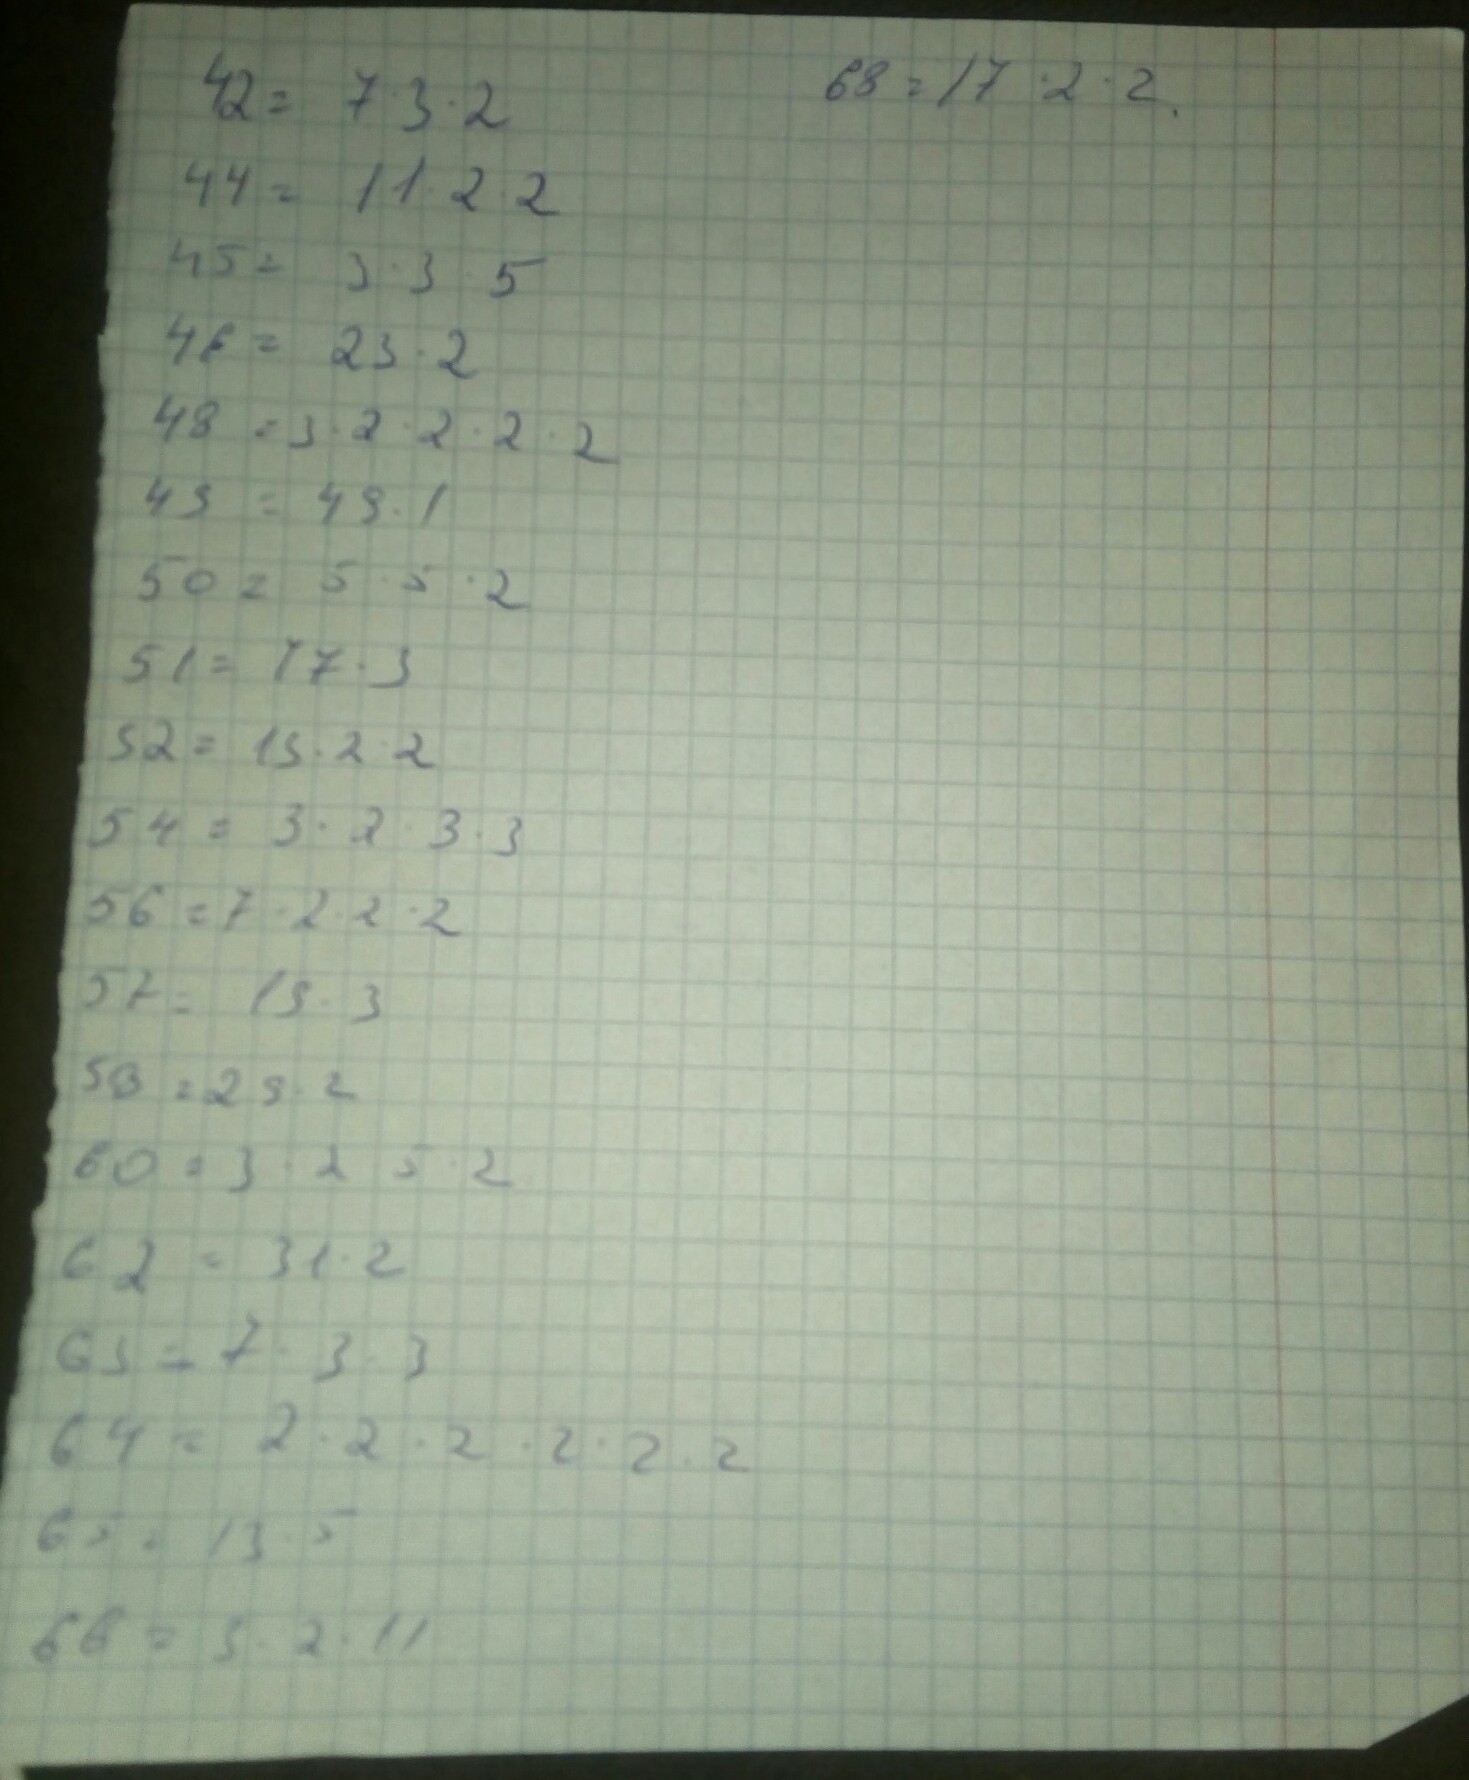 42 = 7·3·2
44 = 11·2·2
45 = 3·3 5
46 = 23·2
48 = 3·2·2·2·2
49 = 49·1
50 = 5·5·2
51 = 17·3
52 = 13·2·2
54 = 3·2·3·3
56 = 7·2·2·2
57 = 19·3
58 = 29·2
60 = 3·2 5·2
62 = 31·2
63 = 7·3·3
64 = 2·2·2·2·2·2
65 = 13·5
66 = 3·2·11
68 = 17·2·2.